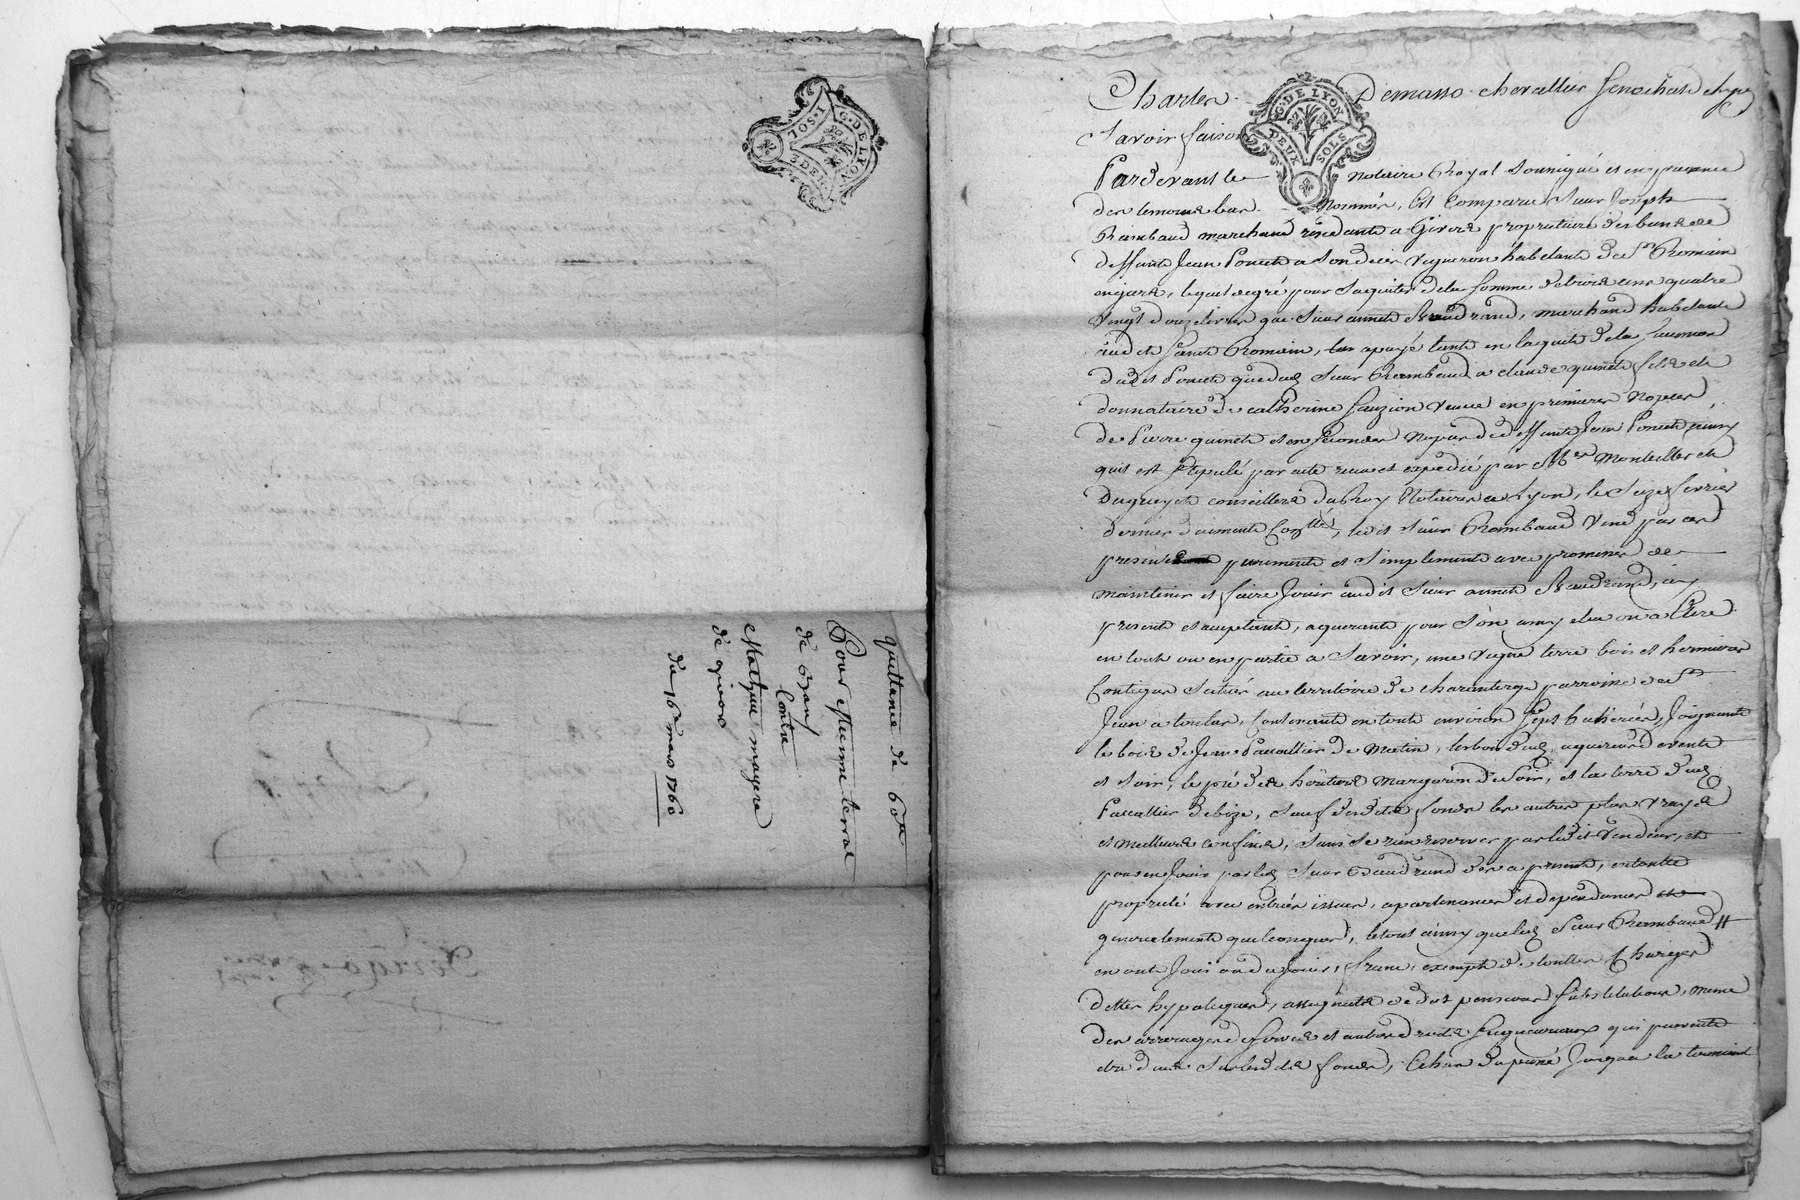 G. DE LYON
1. SOL. 3 DEN.
quittance de 60ᵗᵗ
Pour estienne terral
de
Contre
mathieu mayere
de givors
du 16ᵉ mars 1760
G. DE LYON
DEUX SOLS
Charles Demasso chevallier Senechal
Savoir faison
Pardevant le Notaire Royal soussigné et en presence
des temoins bas Nommés, Est Comparu Sieur Joseph
Rambaud marchand residant a Givors proprietaire des biens de
deffunt Jean Poncet a son deces vigneron habitant de Sᵗ Romain
engiers, lequel de gré pour Saquiter de la Somme de trois cens quatre
vingt douze livres que Sieur annet Baudrand, marchand habitant
audit Saint Romain, a payé tant en laquit de la
dudit Poncet que dud Sieur Rambaud a claude quinet fils et
donnataire de catherine Sauzion veuve en premieres Nopces
de Pierre quinet et en secondes Nopces de deffunt Jean Poncet ainsy
quil est stipulé par acte receu et expedié par Mᵉˢ Monteillet et
Dugueyt conseillers du Roy Notaires a Lyon, le Seize fevrier
dernier duement Conᵗˡˡé, ledit Sieur Rambaud Vend par ces
presentes purement et Simplement avec promesse de
maintenir et faire Jouir audit Sieur annet Baudrand, icy
present et acceptant, aquerant pour Son amy elu ou a Elire
en tout ou en partie a Savoir, une vigne terre bois et hermivas
Contigus Scitués au territoire de charentonge parroisse de Sᵗ
Jean a toulas, Contenant en tout environ Sept bicherées, Joignant
le bois de Jean Pacallier de Matin, les bois dud aquereur de vent
et soir, le pré des heritiers Margaron de Soir, et la terre dud
Pacallier de bize, Sauf desdits fonds les autres plus vrays
et meilleurs confins, Sans Se rien reserver par ledit Vendeur, et
pour en Jouir par led Sieur Baudrand des a present, en toutte
proprieté avec entrées issues, apartenances et dependances et
generalement quelconques, le tout ainsy que led Sieur Rambaud #
en ont Joui ou du Jouir, franc, exempt de touttes Charges
dettes hypoteques, assignats de dot pensions jusques, meme
des arrerages de servis et autres droits Seigneuriaux qui peuvent
etre deus Sur lesdits fonds, Echus du passé Jusqua la